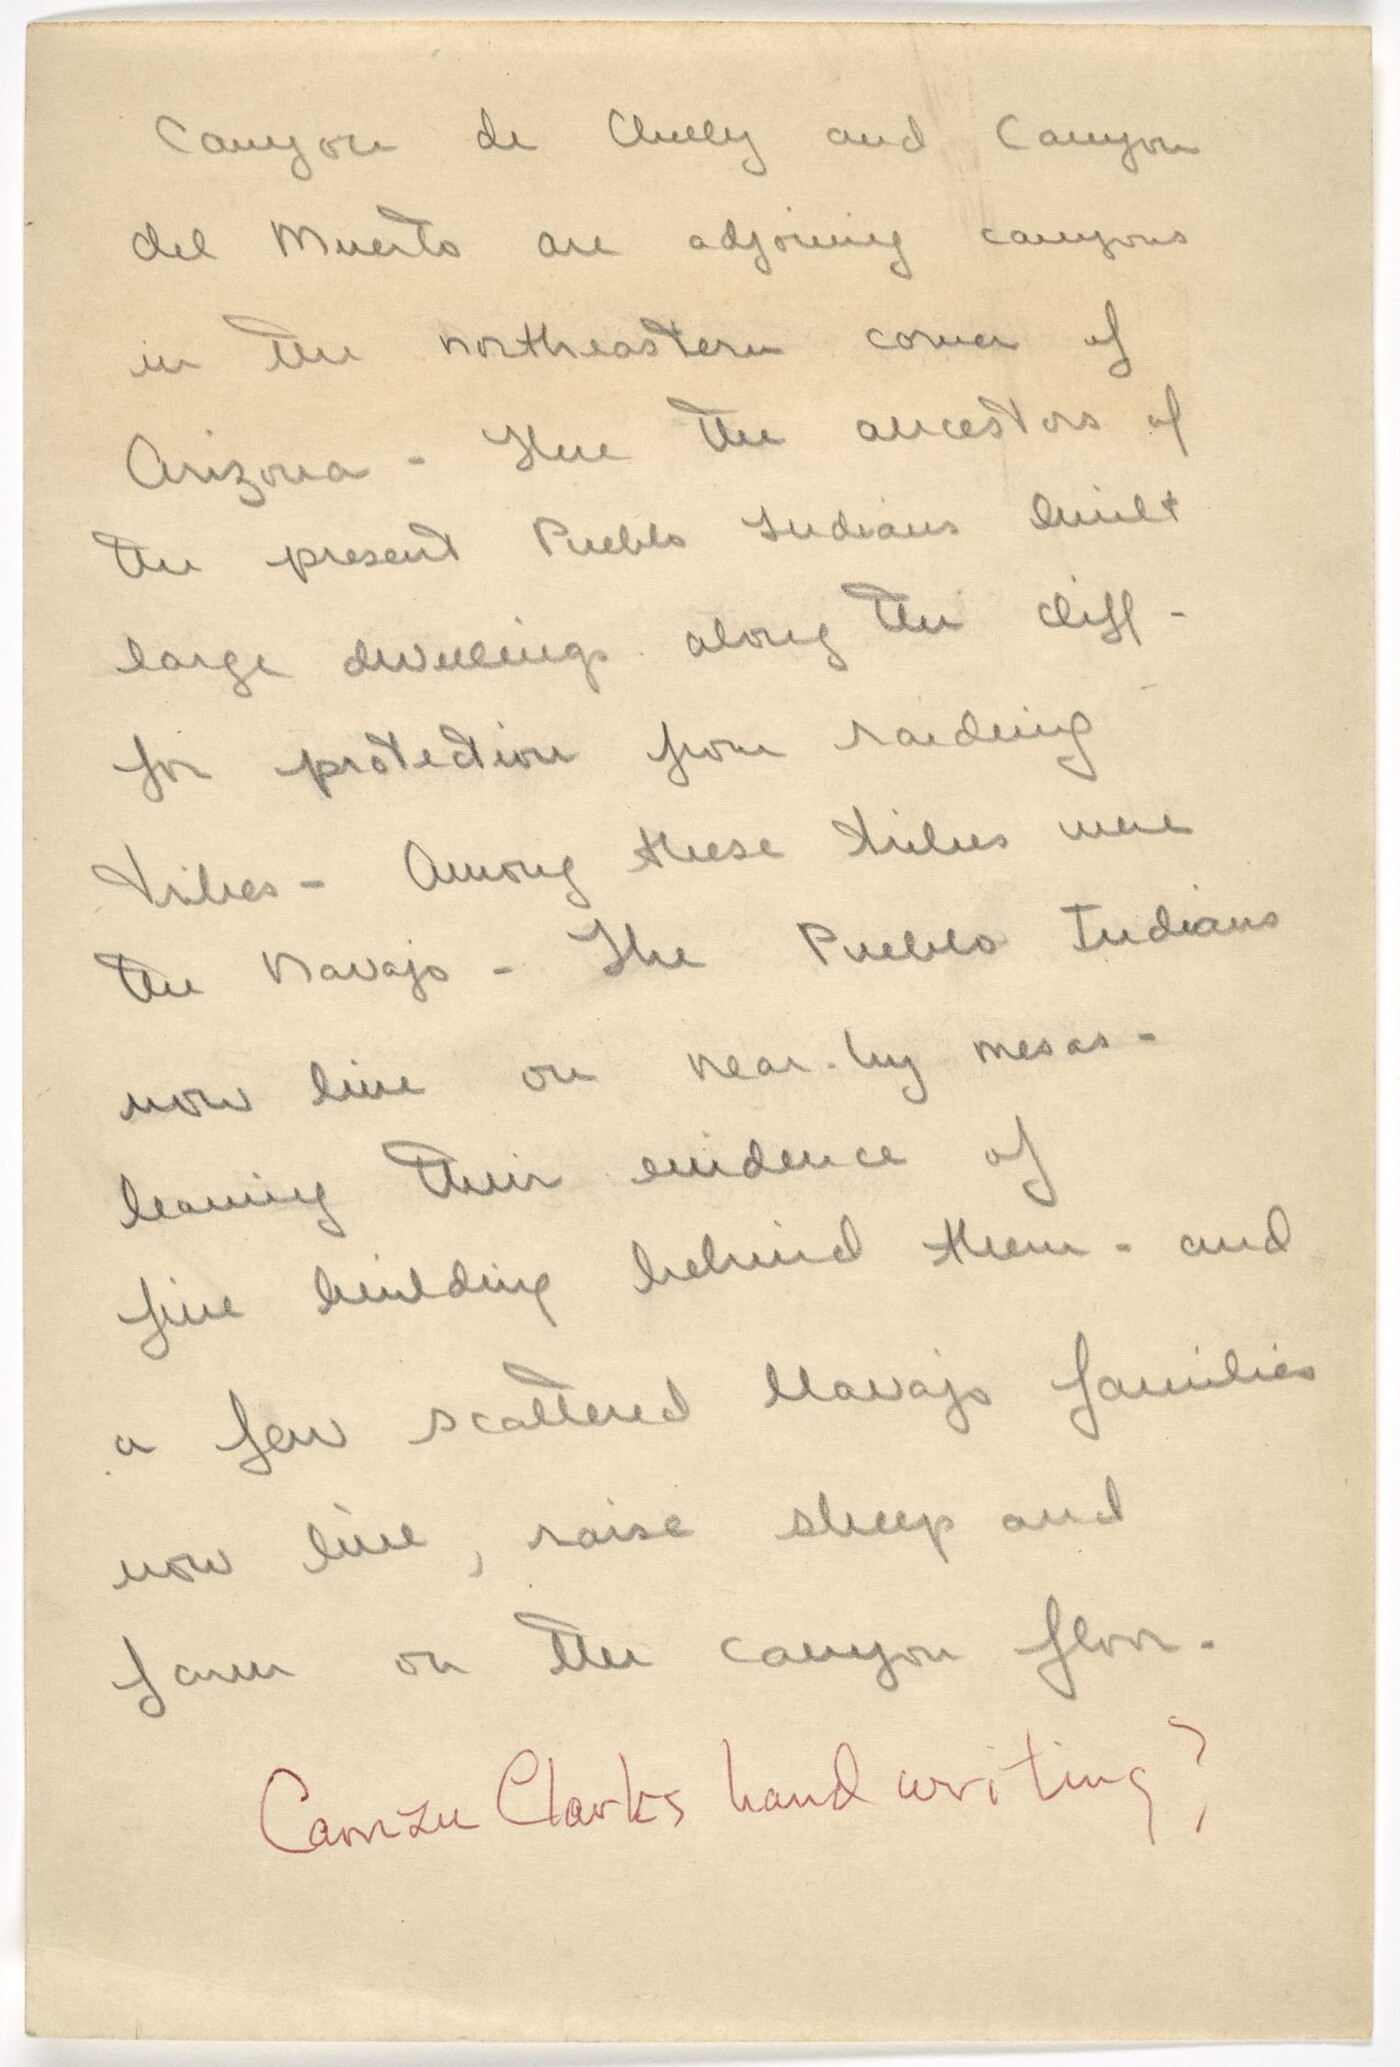 Canyon de Chelly and Canyon
del Muerto are adjoining canyons
in the northeastern corner of
Arizona - Here the ancestors of
the present Pueblo Indians built
large dwellings along the cliff -
for protection from raiding
tribes - Among these tribes were
the Navajo - The Pueblo Indians
now live on near-by mesas -
leaving their evidence of
fine building behind them - and
a few scattered Navajo families
now live, raise sheep and
farm on the canyon floor -
Clarks hand writing?